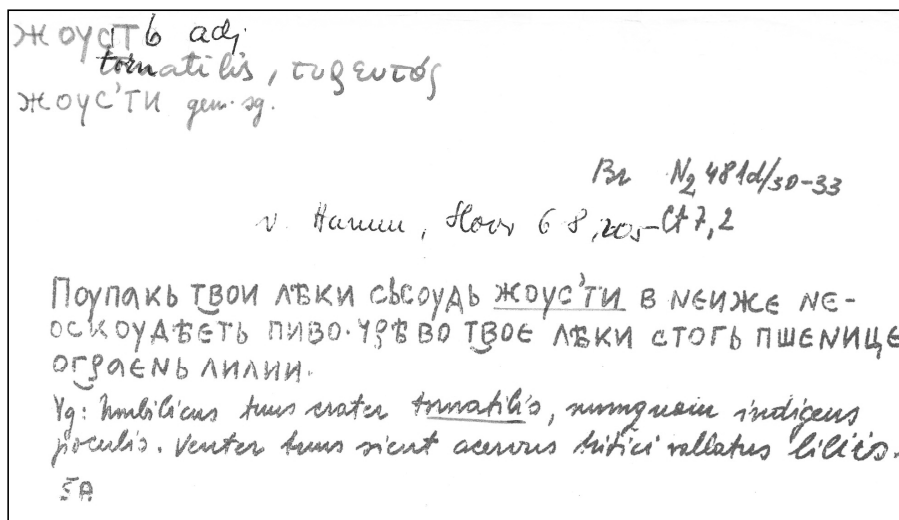 жоусть adj
tornatilis, τορευτός
жоус'ти gen. sg.
Br N₂ 481d/30-33
v. Hamm, Slovo 6-8, 205 Ct 7,2
Поупакь твои лѣки сьсоудь жоус'ти в неиже не-
оскоудѣеть пиво. Чрѣво твое лѣки стогь пшенице
ограень лилии.
Vg: Umbilicus tuus crater tornatilis, numquam indigens
poculis. Venter tuus sicut acervus tritici vallatus liliis.